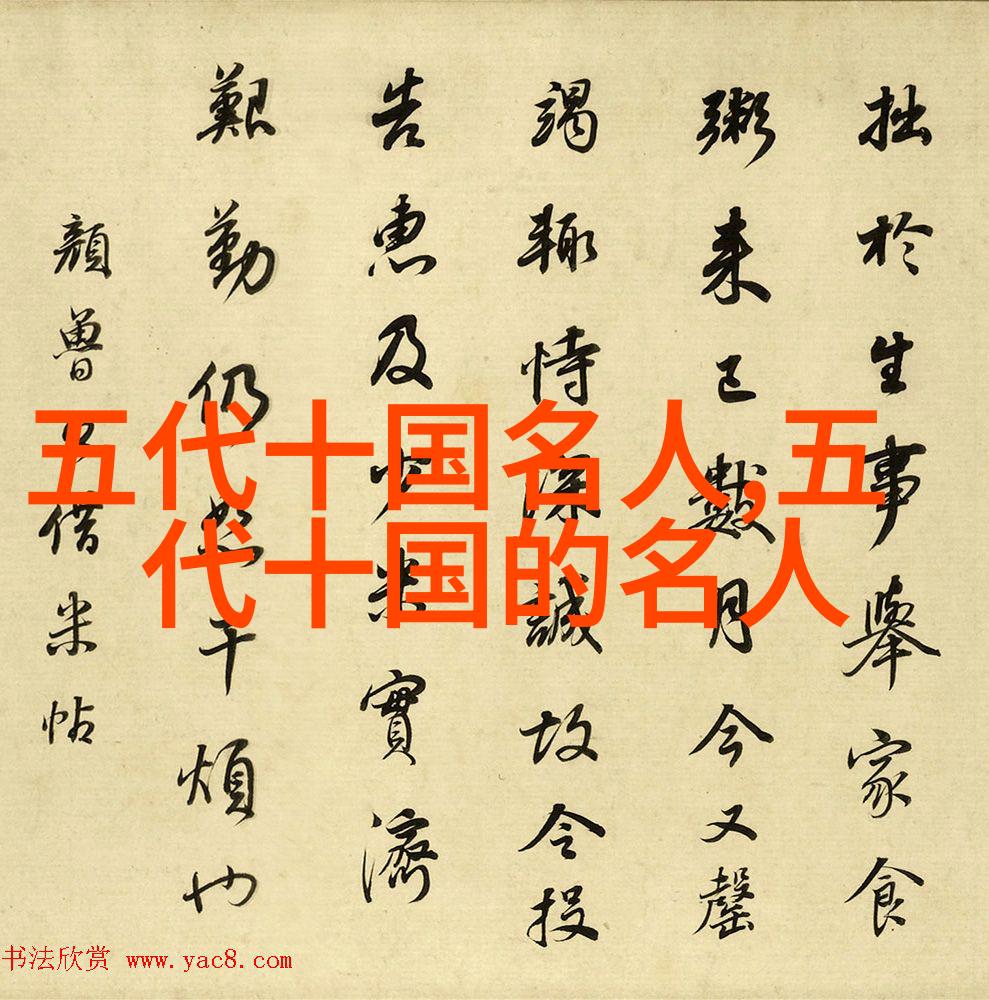 拙於生事舉家食
粥来已數月今又罄
竭輙恃深誠故令投
告惠及少米實濟
艱勤仍恕干煩也
顏魯公借米帖
五代十国名人,五
代十国的名人
书法欣赏 www.yac8.com